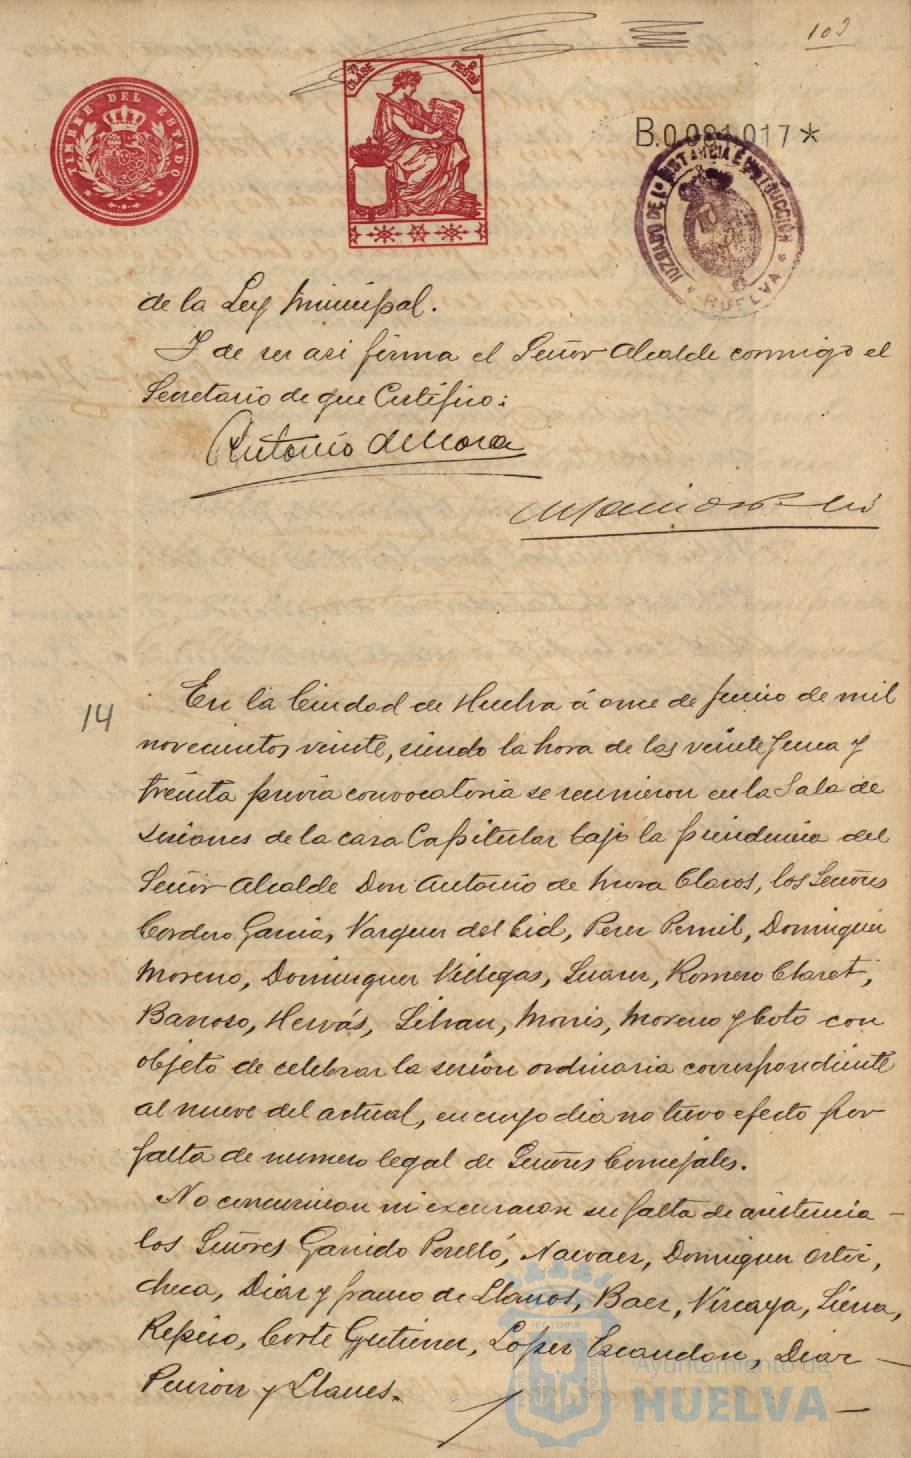 103
TIMBRE DEL ESTADO
7ª CLASE
PESETAS
B.0.081.017*
JUZGADO DE 1ª INSTANCIA É INSTRUCCIÓN
HUELVA
de la Ley Municipal.
Y de ser asi firma el Señor Alcalde conmigo el
Secretario de que Certifico:
Antonio de Mora
14
En la Ciudad de Huelva á once de Junio de mil
novecientos veinte, siendo la hora de las veinte y una y
treinta previa convocatoria se reunieron en la Sala de
sesiones de la casa Capitular bajo la presidencia del
Señor Alcalde Don Antonio de Mora Claros, los Señores
Cordero Garcia, Vazquez del Cid, Perez Pernil, Dominguez
Moreno, Dominguez Villegas, Suarez, Romero Claret,
Barroso, Hervás, Lihan, Morris, Moreno y Coto con
objeto de celebrar la sesión ordinaria correspondiente
al nueve del actual, en cuyo dia no tuvo efecto por
falta de numero legal de Señores Concejales.
No concurrieron ni excusaron su falta de asistencia
los Señores Garrido Perelló, Narvaez, Dominguez Ortiz,
Checa, Diaz y Franco de Llanos, Baez, Vizcaya, Sierra,
Repiso, Corte Gutierrez, Lopez Escandon, Diaz
y Llanes.
Ayuntamiento de
HUELVA